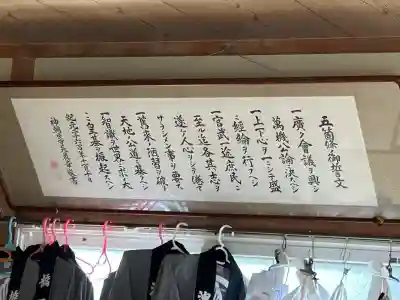 五箇條御誓文
一廣ク會議ヲ興シ
萬機公論ニ決スヘシ
一上下心ヲ一ニシテ盛
ニ經綸ヲ行フヘシ
一官武一途庶民ニ
至ル迄各其志ヲ
遂ケ人心ヲシテ倦マ
サラシメン事ヲ要ス
一舊來ノ陋習ヲ破リ
天地ノ公道ニ基クヘシ
一智識ヲ世界ニ求メ大
ニ皇基ヲ振起スヘシ